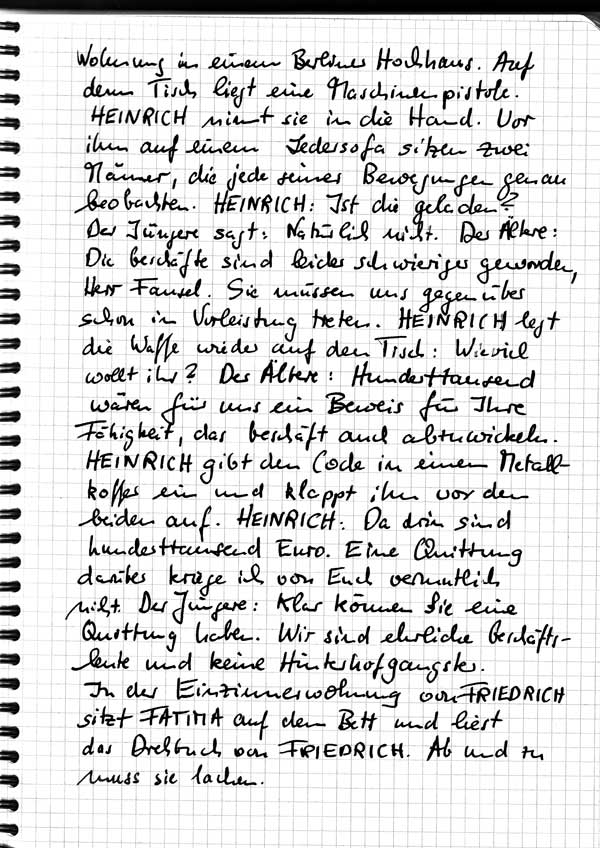 Wohnung in einem Berliner Hochhaus. Auf
dem Tisch liegt eine Maschinenpistole.
HEINRICH nimmt sie in die Hand. Vor
ihm auf einem Ledersofa sitzen zwei
Männer, die jede seiner Bewegungen genau
beobachten. HEINRICH: Ist die geladen?
Der Jüngere sagt: Natürlich nicht. Der Ältere:
Die Geschäfte sind leider schwieriger geworden,
Herr Fausel. Sie müssen uns gegenüber
schon in Vorleistung treten. HEINRICH legt
die Waffe wieder auf den Tisch: Wieviel
wollt ihr? Der Ältere: Hunderttausend
wären für uns ein Beweis für Ihre
Fähigkeit, das Geschäft auch abzuwickeln.
HEINRICH gibt den Code in einen Metall-
koffer ein und klappt ihn vor den
beiden auf. HEINRICH: Da drin sind
hunderttausend Euro. Eine Quittung
darüber kriege ich von Euch vermutlich
nicht. Der Jüngere: Klar können Sie eine
Quittung haben. Wir sind ehrliche Geschäfts-
leute und keine Hinterhofgangster.
In der Einzimmerwohnung von FRIEDRICH
sitzt FATIMA auf dem Bett und liest
das Drehbuch von FRIEDRICH. Ab und zu
muss sie lachen.